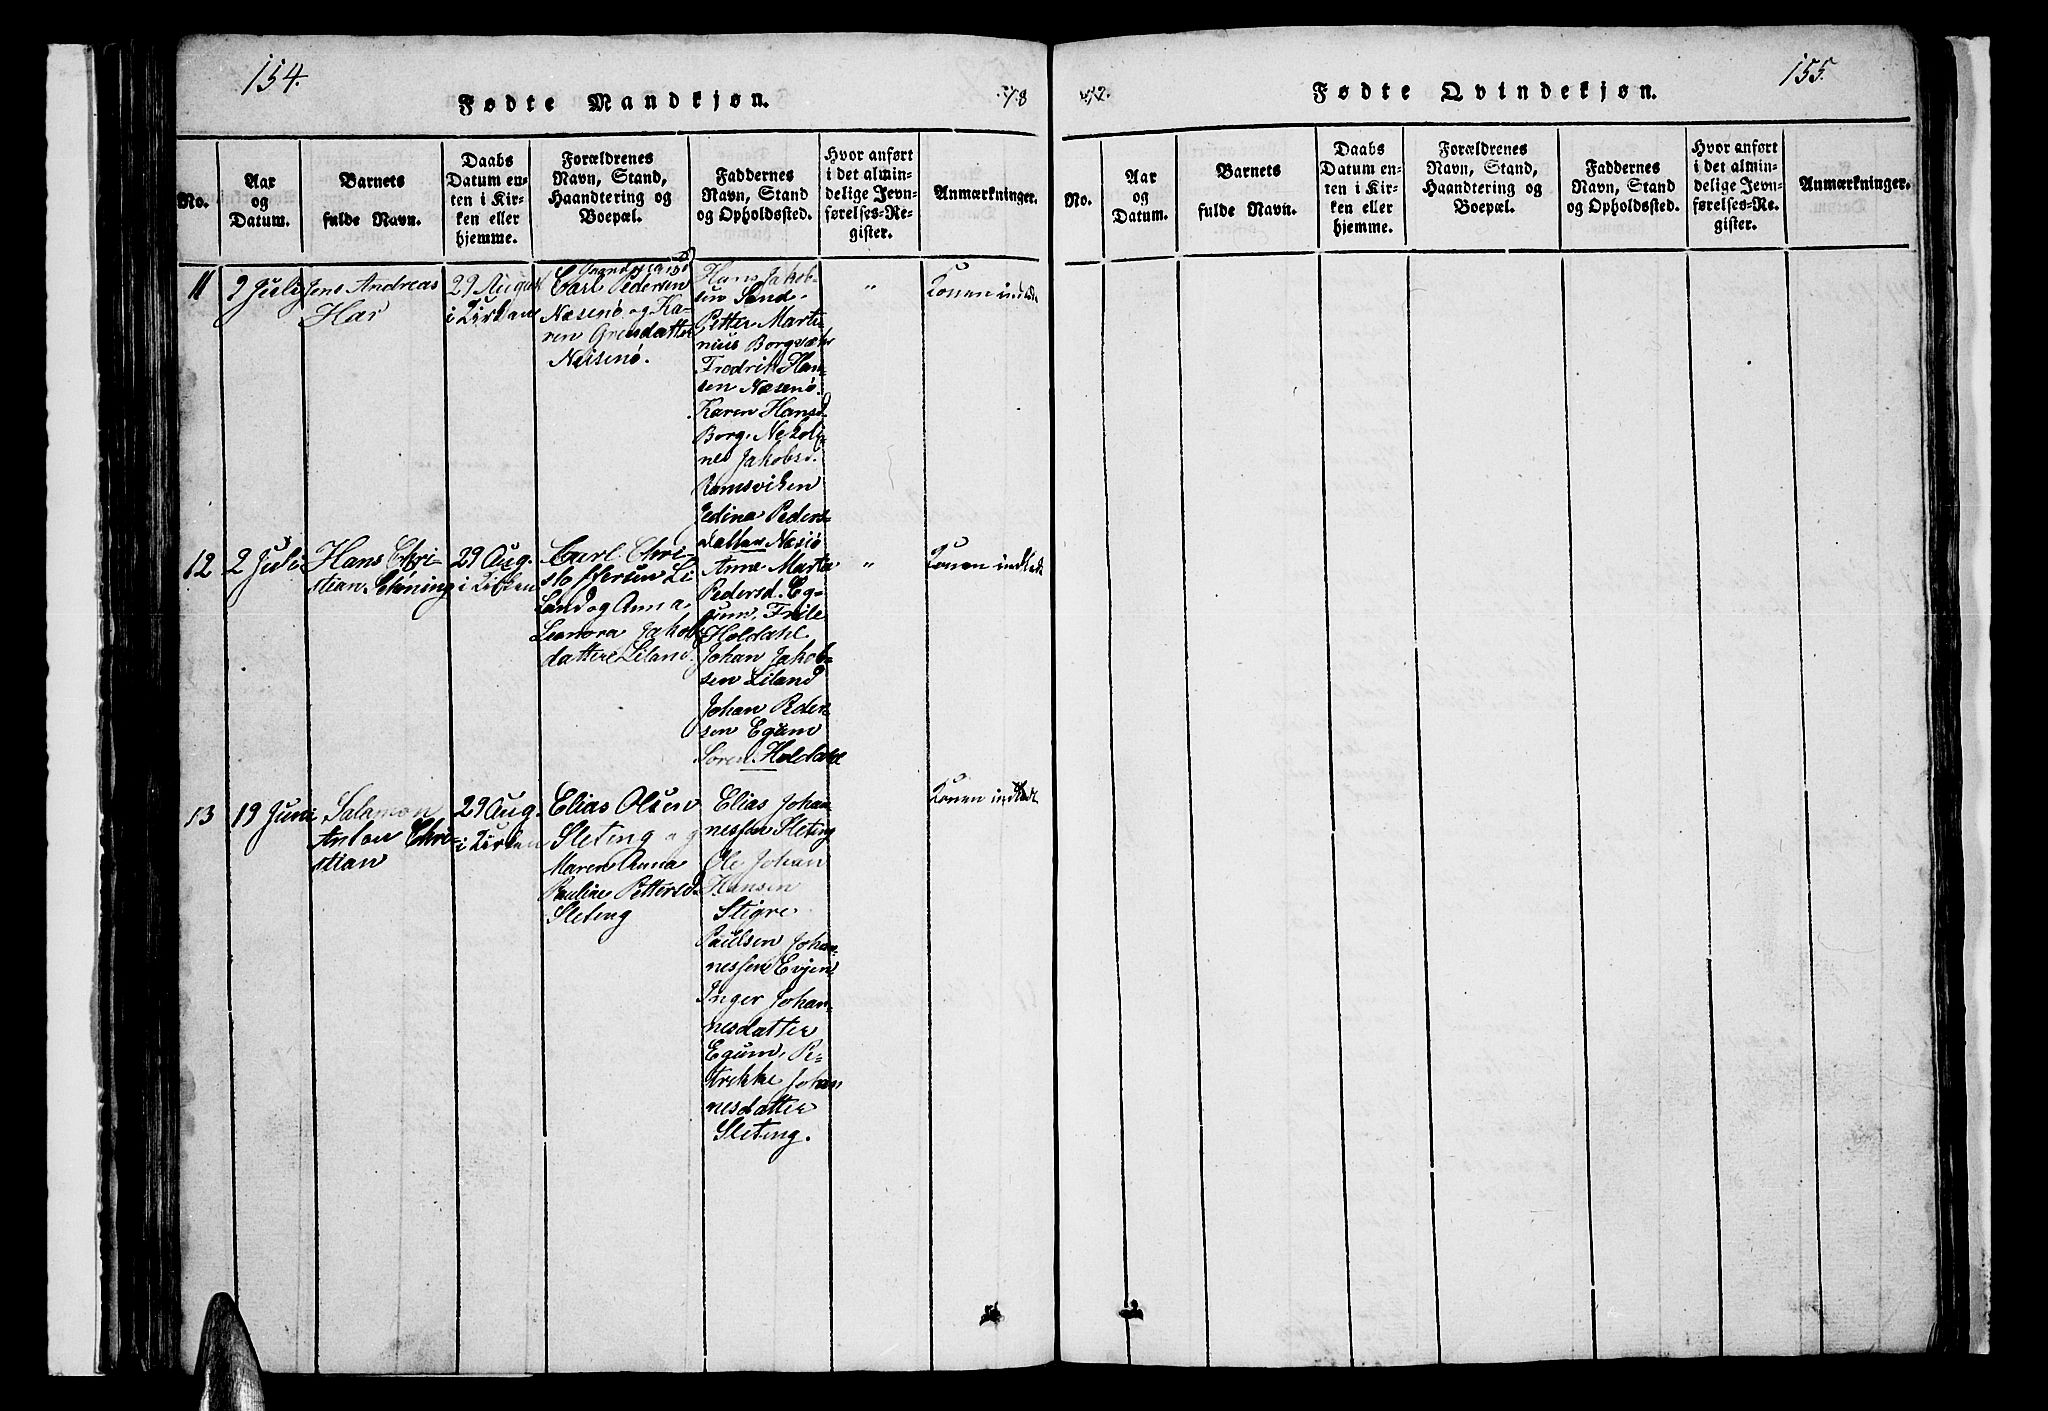 154.
Fødte Mandkjøn.
No.
Aar
og
Datum.
Barnets
fulde Navn.
Daabs
Datum en-
ten i Kir-
ken eller
hjemme.
Forældrenes
Navn, Stand,
Haandtering og
Boepæl.
Faddernes
Navn, Stand
og Opholdssted.
Hvor anført
i det almin-
delige Jevn-
førelses-Re-
gister.
Anmærkninger.
11
2 Juli
Jens Andreas
29 August
i Kirken
Carl Pedersen
Næsenø og Ka-
ren
Næisenø.
Hans Jakob-
sen Sand.
Petter Marti-
nius Borgvær
Fredrik Han-
sen Næsenø.
Karen Hansd.
Borg. Nekoli-
ne Jakobsd.
Ramsviken
Edina Peders-
datter Næsnø
"
Konen indledt
12
2 Juli
Hans Chri-
stian
29 Aug.
i Kirken
Carl Chri-
stoffersen Li-
land og Anna
Leonora Jakobs
datter Liland.
Anne Marta
Pedersd. Eg-
gum,
Holdahl
Johan Jakob-
sen Liland
Johan Peder-
sen Egum
Søren Holdahl
"
Konen indledt
13
19 Juni
Salamon
Anton Chri-
stian
29 Aug.
i Kirken
Elias Olsen
Sleting og
Maren Anna
Pauline Pettersd
Sleting
Elias Johan-
nessen Sleting
Ole Johan
Hansen
Stigre.
Paulsen Johan-
nessen Evjen
Inger Johan-
nesdatter
Egum, Pe-
trekke Johan
nesdatter
Sleting.
Konen indledt
155.
Fødte Qvindekjøn.
No.
Aar
og
Datum.
Barnets
fulde Navn.
Daabs
Datum en-
ten i Kir-
ken eller
hjemme.
Forældrenes
Navn, Stand,
Haandtering og
Boepæl.
Faddernes
Navn, Stand
og Opholdssted.
Hvor anført
i det almin-
delige Jevn-
førelses-Re-
gister.
Anmærkninger.